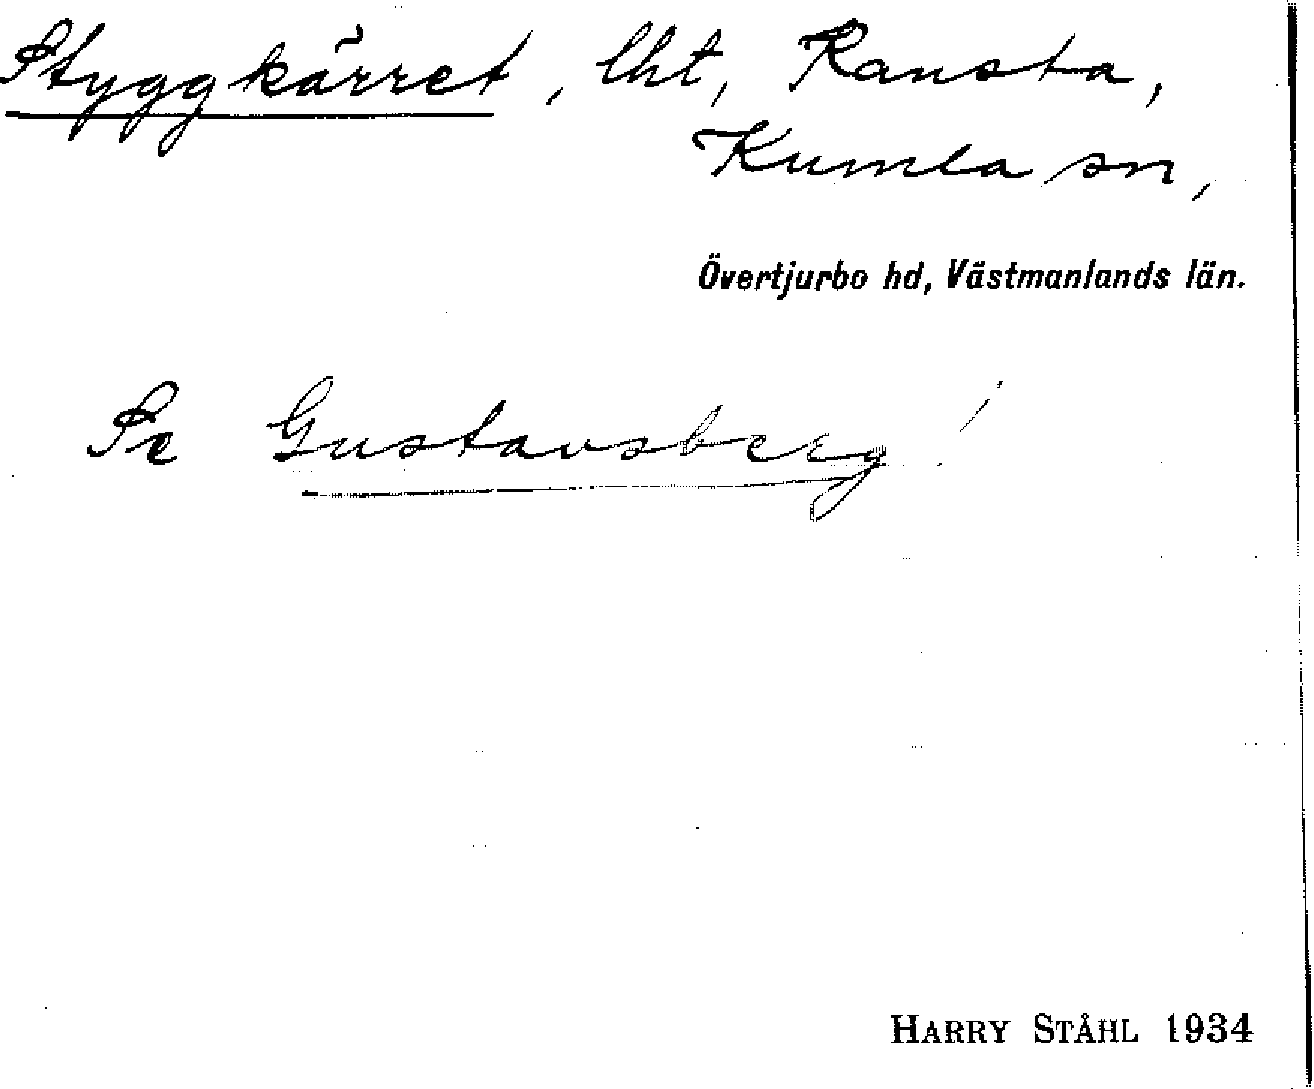 Styggkärret, lht, Ransta,
Kumla sn,
Övertjurbo hd, Västmanlands län.
Se Gustavsberg!
HARRY STÅHL 1934